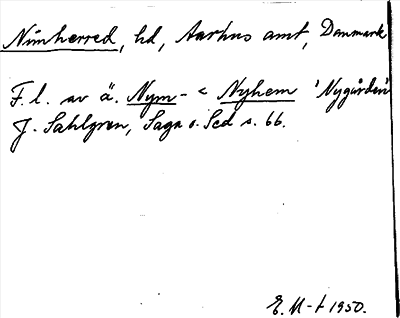 Nimherred, hd, Aarhus amt, Danmark
F. l. av ä. Nym- < Nyhem 'Nygården'
J. Sahlgren, Saga o. Sed s. 66.
E. U-t 1950.